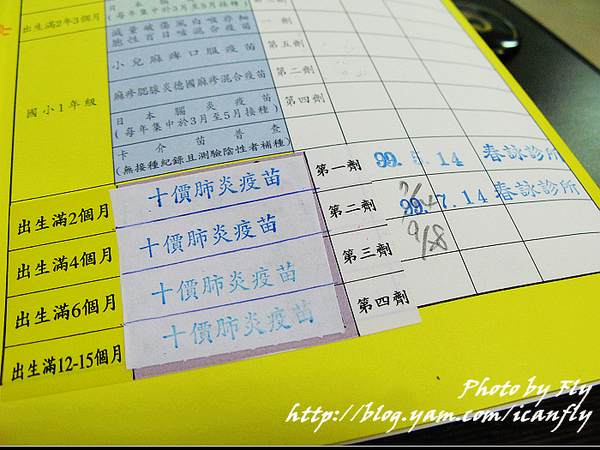 出生滿2年3個月
日本腦炎疫苗
(每年集中於3月至5月接種)
一劑
國小1年級
減量破傷風白喉非細胞性百日咳混合疫苗
小兒麻痺口服疫苗
第五劑
麻疹腮腺炎德國麻疹混合疫苗
第二劑
日本腦炎疫苗
(每年集中於3月至5月接種)
第四劑
卡介苗普查
(無接種紀錄且測驗陰性者補種)
出生滿2個月 十價肺炎疫苗 第一劑 99. 5. 14 春詠診所
出生滿4個月 十價肺炎疫苗 第二劑 99. 7. 14 春詠診所
9/8
出生滿6個月 十價肺炎疫苗 第三劑
出生滿12-15個月 十價肺炎疫苗 第四劑
Photo by Fly
http://blog.yam.com/icanfly